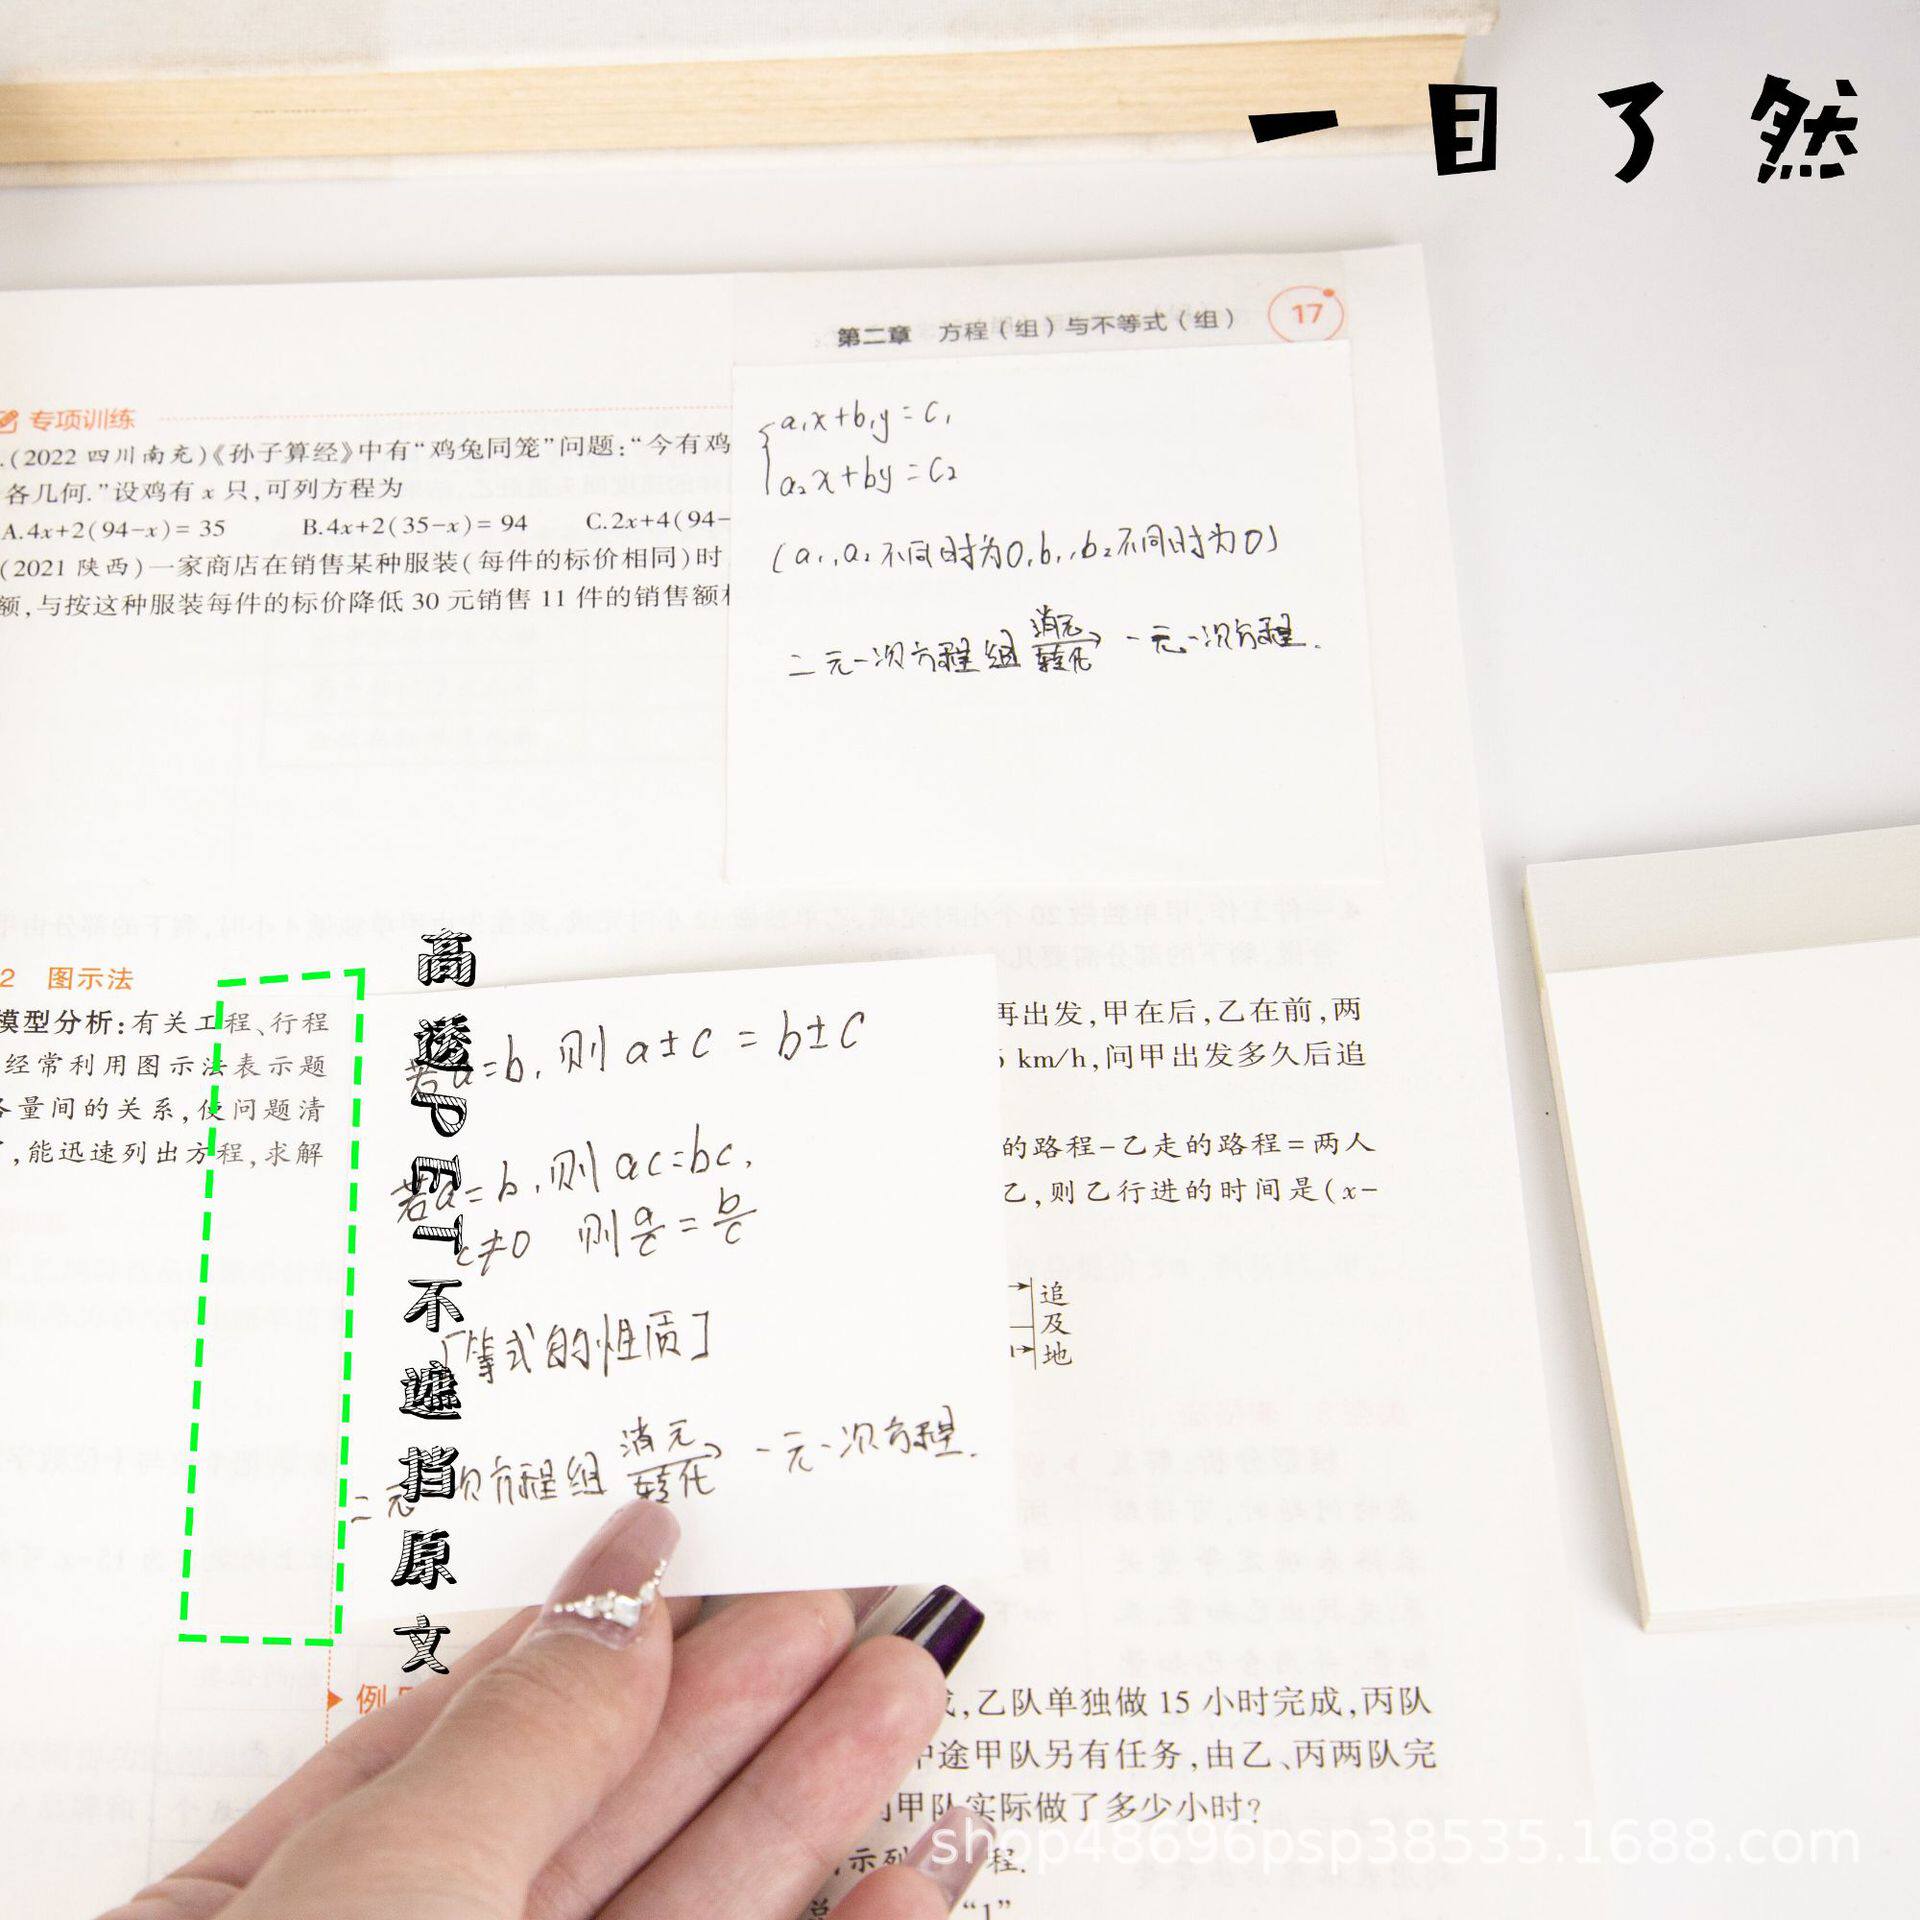 一目了然
第二章 方程（组）与不等式（组） 17
专项训练
.(2022 四川南充)《孙子算经》中有“鸡兔同笼”问题:“今有鸡
各几何.”设鸡有 x 只,可列方程为
A.4x+2(94-x)= 35 B.4x+2(35-x)= 94 C.2x+4(94-
(2021 陕西)一家商店在销售某种服装(每件的标价相同)时
额,与按这种服装每件的标价降低 30 元销售 11 件的销售额
a₁x+b₁y=c₁
a₂x+by=c₂
(a₁,a₂不同时为0,b₁,b₂不同时为0)
二元一次方程组 消元 转化 一元一次方程.
2 图示法
模型分析:有关工程、行程
经常利用图示法表示题
各量间的关系,使问题清
,能迅速列出方程,求解
高透PET不遮挡原文
若a=b,则 a±c=b±c
若a=b,则 ac=bc,
c≠0 则 a/c=b/c
「等式的性质」
二元 次方程组 消元 转化 一元一次方程.
再出发,甲在后,乙在前,两
km/h,问甲出发多久后追
的路程-乙走的路程=两人
乙,则乙行进的时间是(x-
追
及
地
例
,乙队单独做 15 小时完成,丙队
中途甲队另有任务,由乙、丙两队完
甲队实际做了多少小时?
示列 程.
“1”
shop48696psp38535.1688.com